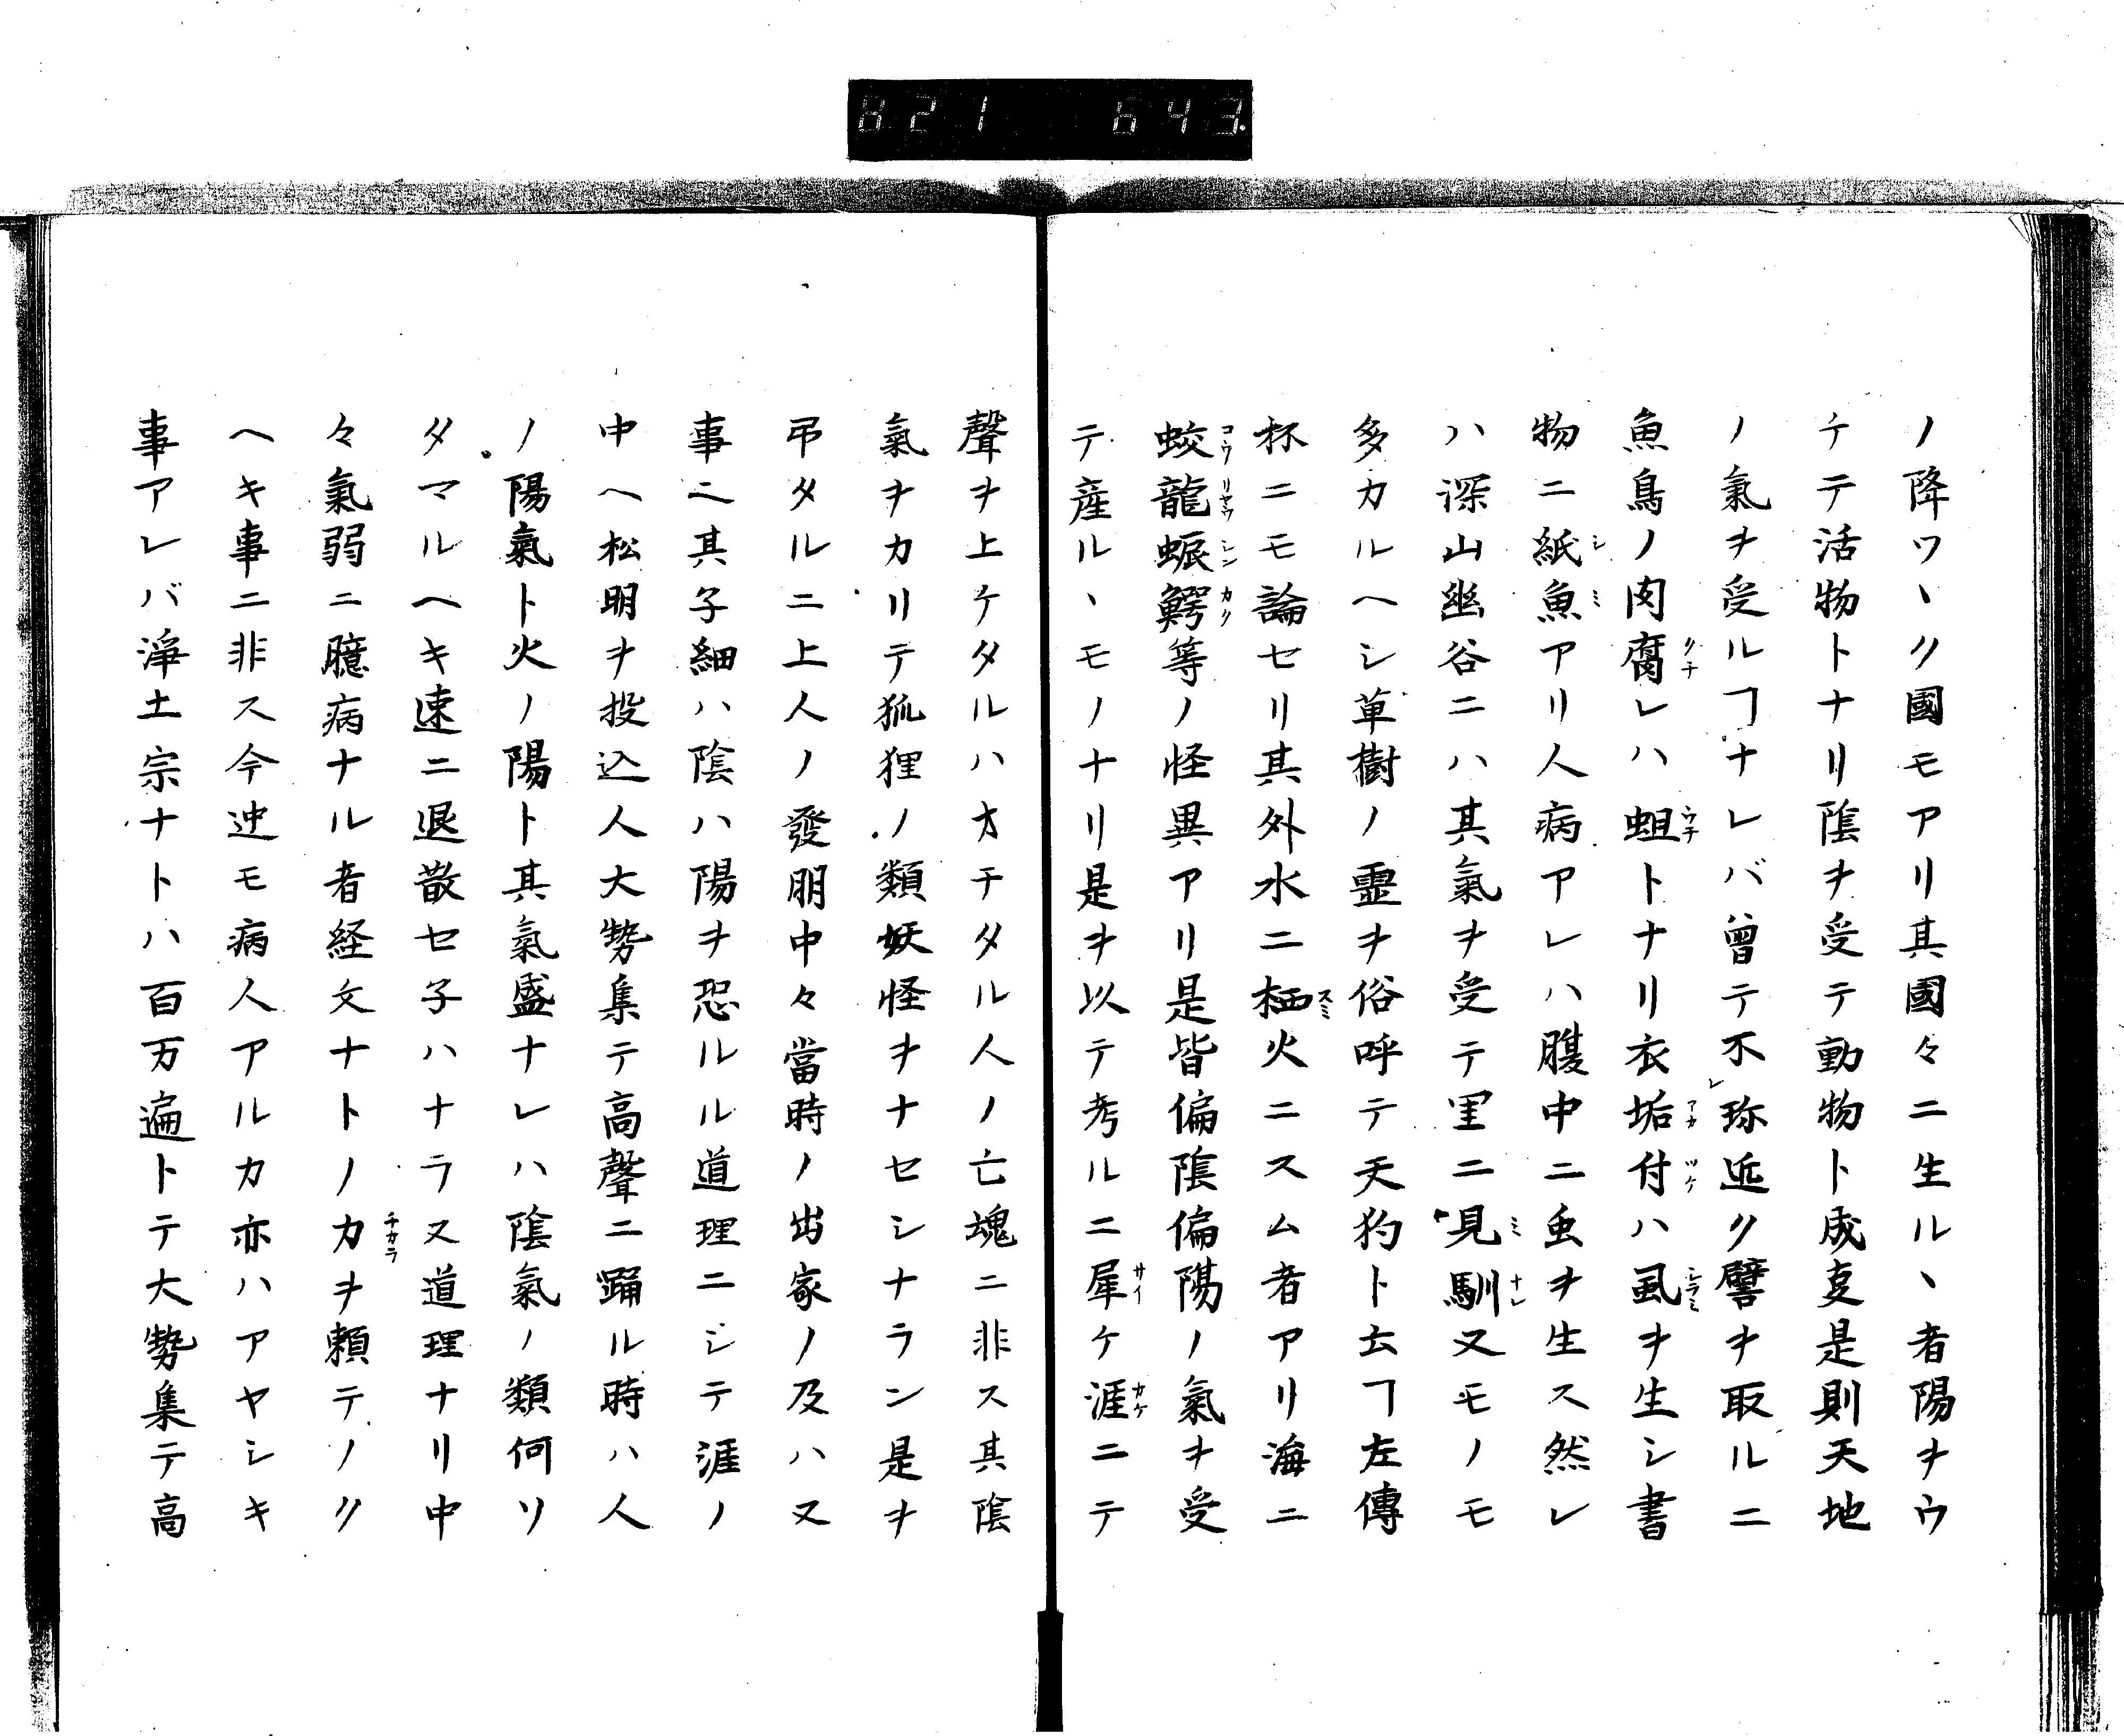 821 643.
ノ降ワヽク國モアリ其國々ニ生ルヽ者陽ヲウ
ケテ活物トナリ陰ヲ受テ動物ト成支是則天地
ノ氣ヲ受ルヿナレバ曾テ不レ珎近ク譬ヲ取ルニ
魚鳥ノ肉腐クチレハ蛆ウチトナリ衣垢アカ付ツケハ虱シラミヲ生シ書
物ニ紙シ魚ミアリ人病アレハ腹中ニ虫ヲ生ス然レ
ハ深山幽谷ニハ其氣ヲ受テ里ニ見ミ馴ナレヌモノモ
多カルヘシ草樹ノ霊ヲ俗呼テ天狗ト云ヿ左傳
杯ニモ論セリ其外水ニ栖スミ火ニスム者アリ海ニ
蛟コウ龍リヤウ蜃シン鰐カク等ノ怪異アリ是皆偏陰偏陽ノ氣ヲ受
テ産ルヽモノナリ是ヲ以テ考ルニ犀サイケ涯カケニテ
聲ヲ上ケタルハオチタル人ノ亡魂ニ非ス其陰
氣ヲカリテ狐狸ノ類妖怪ヲナセシナラン是ヲ
弔タルニ上人ノ發明中々當時ノ出家ノ及ハヌ
事ニ其子細ハ陰ハ陽ヲ恐ルル道理ニシテ涯ノ
中ヘ松明ヲ投込人大勢集テ高聲ニ踊ル時ハ人
ノ陽氣ト火ノ陽ト其氣盛ナレハ陰氣ノ類何リ
タマルヘキ速ニ退散セ子ハナラヌ道理ナリ中
々氣弱ニ臆病ナル者経文ナトノカチカラヲ頼テノク
ヘキ事ニ非ス今迚モ病人アルカ亦ハアヤシキ
事アレバ淨土宗ナトハ百万遍トテ大勢集テ高